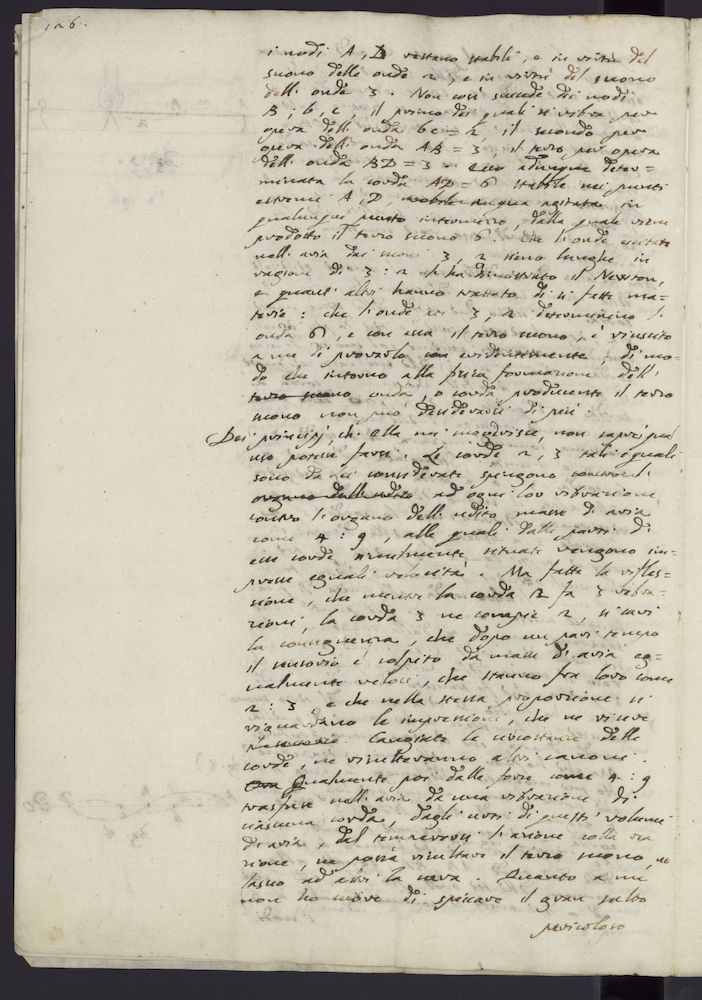 126.
i nodi A, D restano stabili, e in virtù del
suono delle onde 2, e in virtù del suono
dell'onde 3. Non così succede dei nodi
B, b, c, il primo dei quali si vibra per
opera dell'onda bc = 2, il secondo per
opera dell'onda AB = 3, il terzo per opera
dell'onda BD = 3. adunque deter-
minata la corda AD = 6 stabile nei punti
estremi A, D, agitata in
qualunque punto intermedio, dalla quale viene
prodotto il terzo suono 6. Che l'onde eccitate
nell'aria dai suoni 3, 2 sieno lunghe in
ragione di 3 : 2 l'ha dimostrato il Newton,
e quanti altri hanno trattato di sì fatte ma-
terie: che l'onde 3, 2 determinino l'
onda 6, e con essa il terzo suono, è riuscito
a me di provarlo così evidentemente, di mo-
do che intorno alla fisica formazione dell'
terzo suono onda, o corda producente il terzo
suono non può desiderarsi di più.
Dei principj, ch'Ella mi suggerisce, non saprei qual
uso potesse farsi. Le corde 2, 3 tali e quali
sono da lei considerate spingono
organo dell'udito ad ogni lor vibrazione
contro l'organo dell'udito masse di aria
come 4 : 9, alle quali dalle parti di
esse corde similmente situate vengono im-
presse eguali velocità. Ma fatta la rifles-
sione, che mentre la corda 2 fa 3 vibra-
zioni, la corda 3 ne compie 2, si cavi
la conseguenza, che dopo un pari tempo
il sensorio è colpito da masse di aria eg-
ualmente veloci, che stanno fra loro come
2 : 3 e che nella stessa proporzione si
riguardino le impressioni, che ne riceve
. Cangiate le circostanze delle
corde, ne risulteranno altri canoni.
Qualmente poi dalle forze come 4 : 9
trasfuse nell'aria da una vibrazione di
ciascuna corda, dagli urti di questi volumi
di aria, dal temperarsi l'azione colla rea
zione, ne possa risultare il terzo suono, ne
lascio ad altri la cura. Quanto a me
non ho cuore di spiccare il gran salto
pericoloso